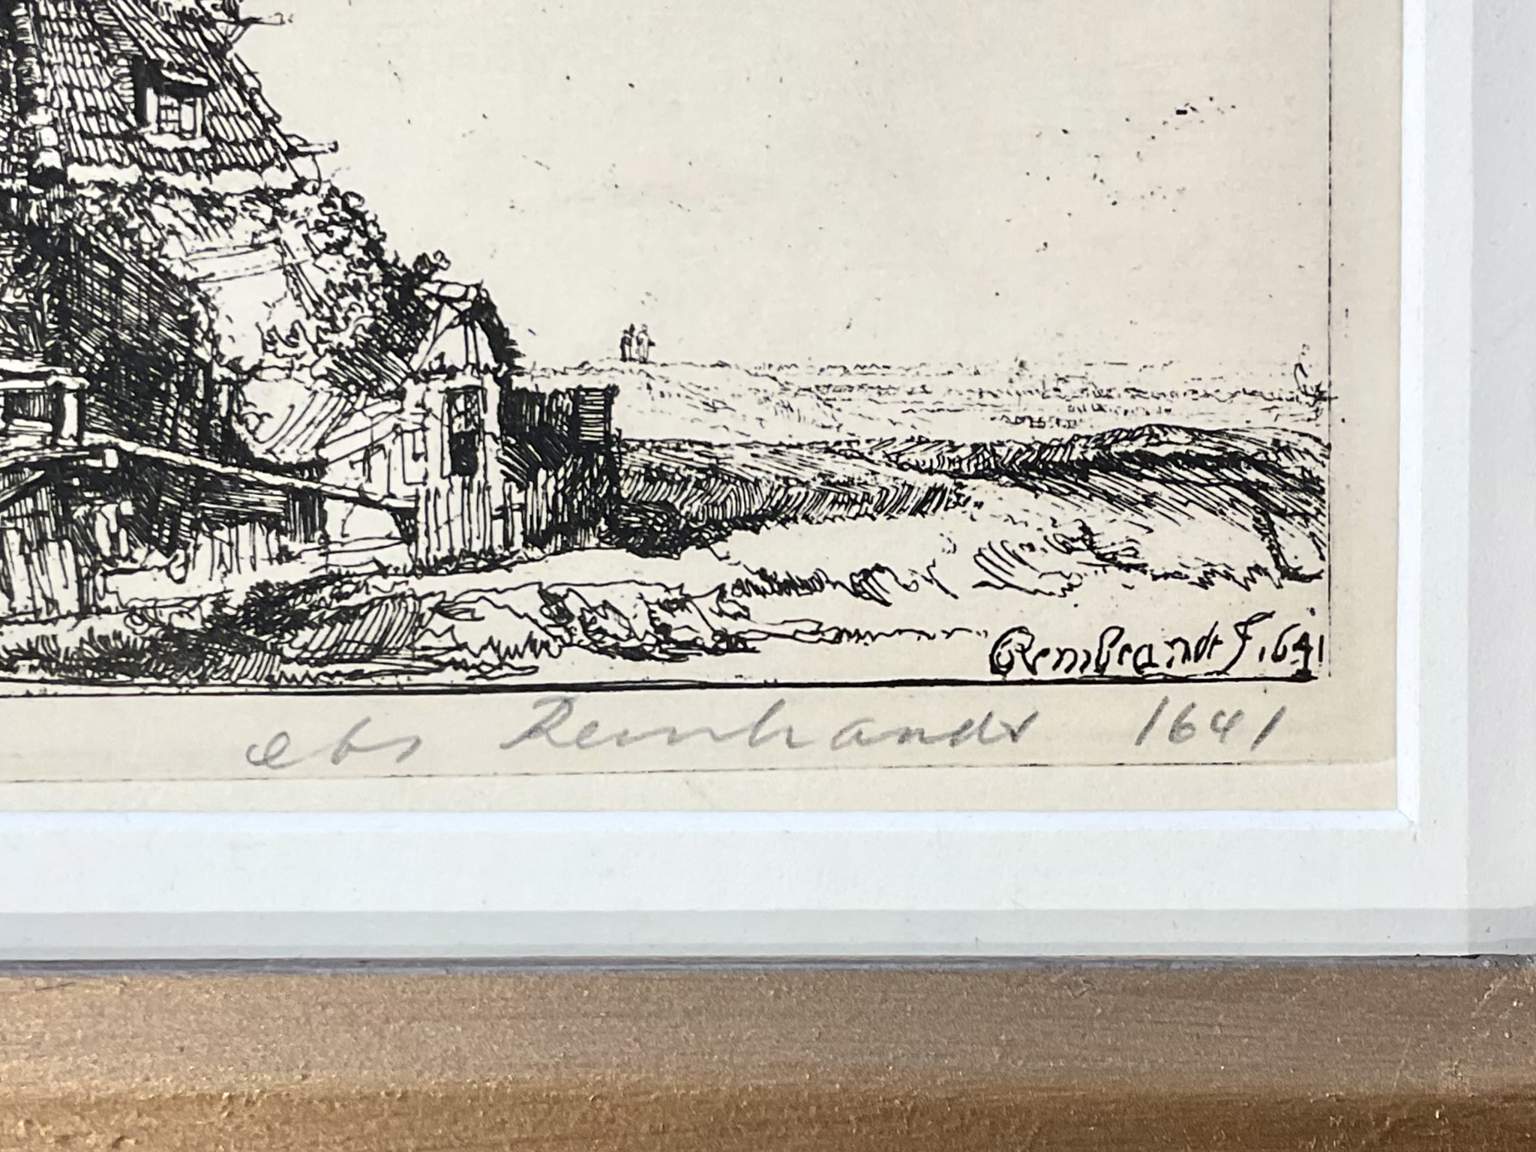 Rembrandt f. 1641
ets Rembrandt 1641